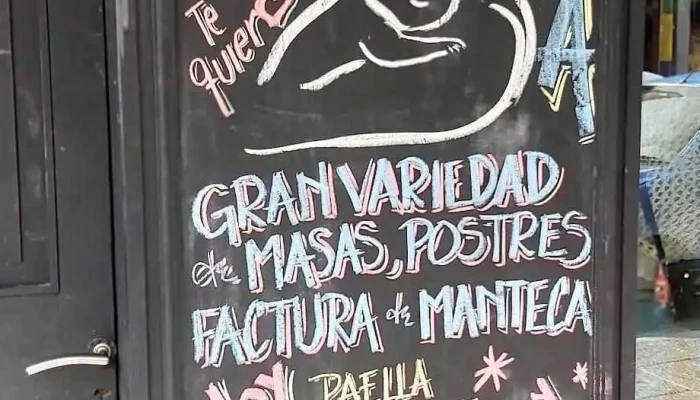 Te
quiero
A
GRAN VARIEDAD
de MASAS, POSTRES
FACTURA de MANTECA
HOY PAELLA